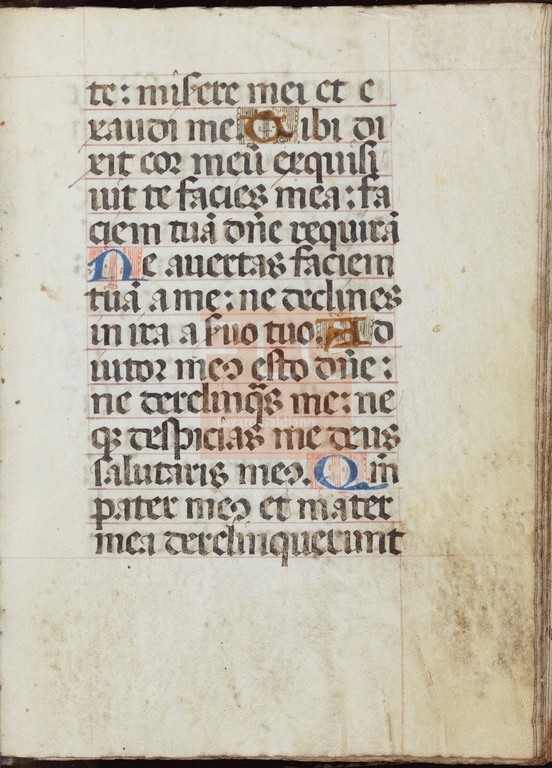 te: miſere mei et e
xaudi me. Tibi di
xit cor meū exquiſi
uit te facies mea: fa
ciem tuā dn̄e requirā
Ne auertas faciem
tuā a me: ne declines
in ira a ſuo tuo. Ad
iutor meꝰ eſto dn̄e:
ne derelinqᷓs me: ne
qꝫ deſpicias me deus
ſalutaris meꝰ. Qm̄
pater meꝰ et mater
mea derelinquerunt
Lázaro Galdiano